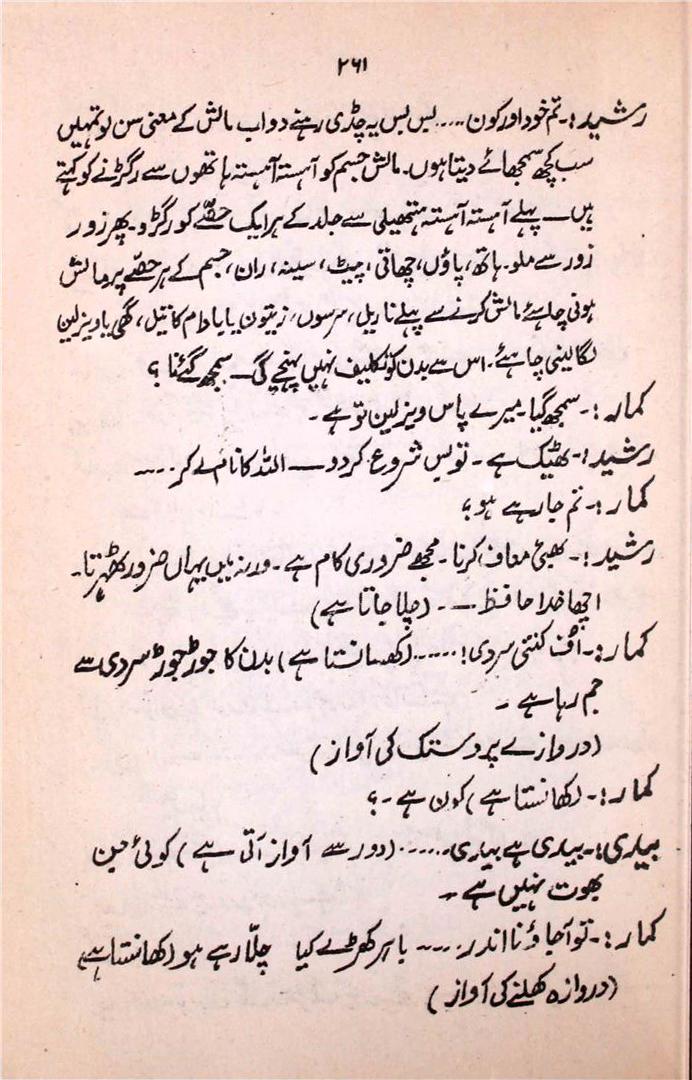 ۲۶۱
رشید:۔ تم خود اور کون .... بس بس یہ چڈی رہنے دو اب مالش کے معنی سن لو تمہیں
سب کچھ سمجھائے دیتا ہوں۔ مالش جسم کو آہستہ آہستہ ہاتھوں سے رگڑنے کو کہتے
ہیں ۔ پہلے آہستہ آہستہ ہتھیلی سے جلد کے ہر ایک حصّے کو رگڑو۔ پھر زور
زور سے ملو۔ ہاتھ، پاؤں، چھاتی، پیٹ، سینہ، ران، جسم کے ہر حصّے پر مالش
ہونی چاہئے مالش کرنے سے پہلے ناریل، سرسوں، زیتون یا بادام کا تیل، گھی یا ویزلین
لگا لینی چاہئے۔ اس سے بدن کو تکلیف نہیں پہنچے گی ۔ سمجھ گئے نا؟
کمار:۔ سمجھ گیا۔ میرے پاس ویزلین تو ہے۔
رشید:۔ ٹھیک ہے۔ تو بس شروع کردو — اللہ کا نام لے کر ....
کمار:۔ تم جا رہے ہو؟
رشید:۔ بھئی معاف کرنا۔ مجھے ضروری کام ہے۔ ورنہ میں یہاں ضرور ٹھہرتا۔
اچھا خدا حافظ ۔۔۔ (چلا جاتا ہے)
کمار:۔ اُف کتنی سردی! ..... (کھانستا ہے) بدن کا جوڑ جوڑ سردی سے
جم رہا ہے۔
(دروازے پر دستک کی آواز)
کمار:۔ (کھانستا ہے) کون ہے۔؟
بہاری:۔ بہاری ہے بہاری ...... (دور سے آواز آتی ہے) کوئی جن
بھوت نہیں ہے۔
کمار:۔ تو آجاؤ نا اندر .... باہر کھڑے کیا چلّا رہے ہو (کھانستا ہے)
(دروازہ کھلنے کی آواز)